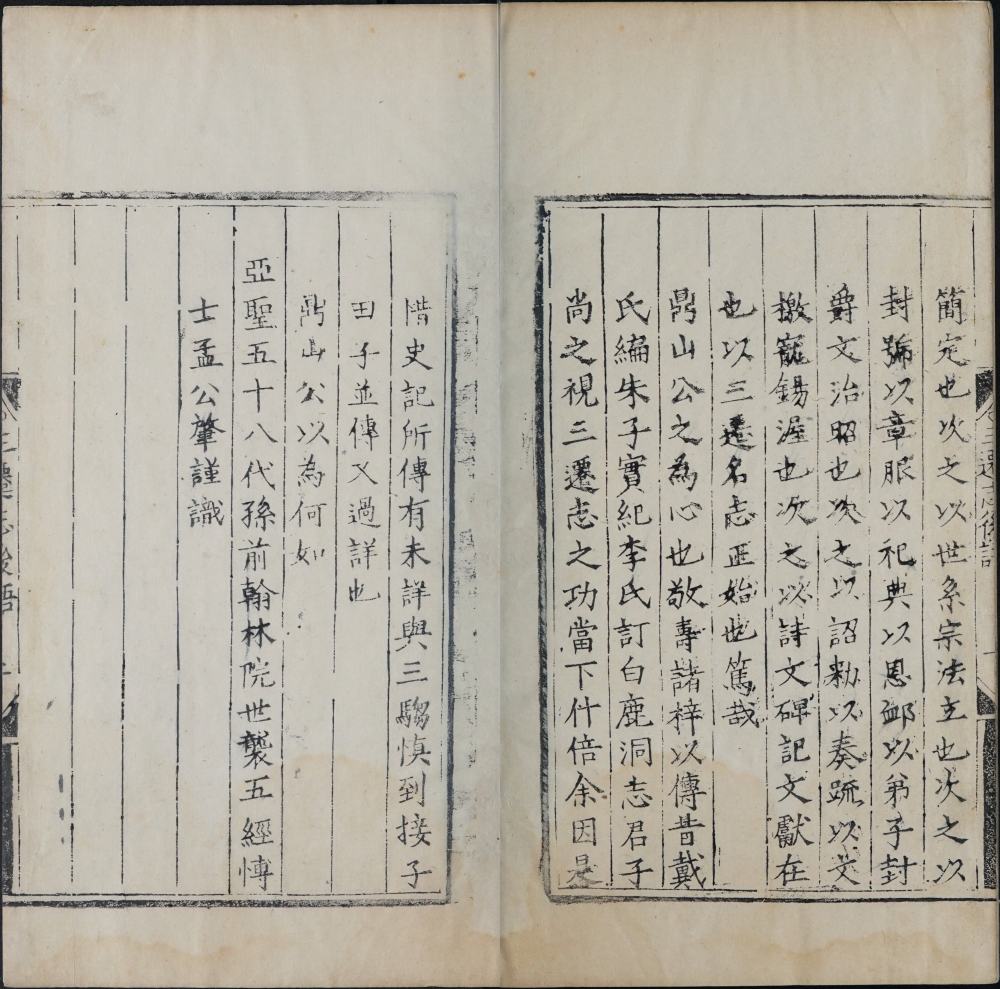 簡定也次之以世系宗法立也次之以
封號以章服以祀典以恩䘏以弟子封
爵文治昭也次之以詔勑以奏疏以文
檄寵錫渥也次之以詩文碑記文獻在
也以三遷名志正始也篤哉
鼎山公之為心也敬壽諸梓以傳昔戴
氏編朱子實紀李氏訂白鹿洞志君子
尚之視三遷志之功當下什倍余因是
惜史記所傳有未詳與三騶慎到接子
田子並傳又過詳也
鼎山公以為何如
亞聖五十八代孫前翰林院世襲五經博
士孟公肇謹識
三遷志後語